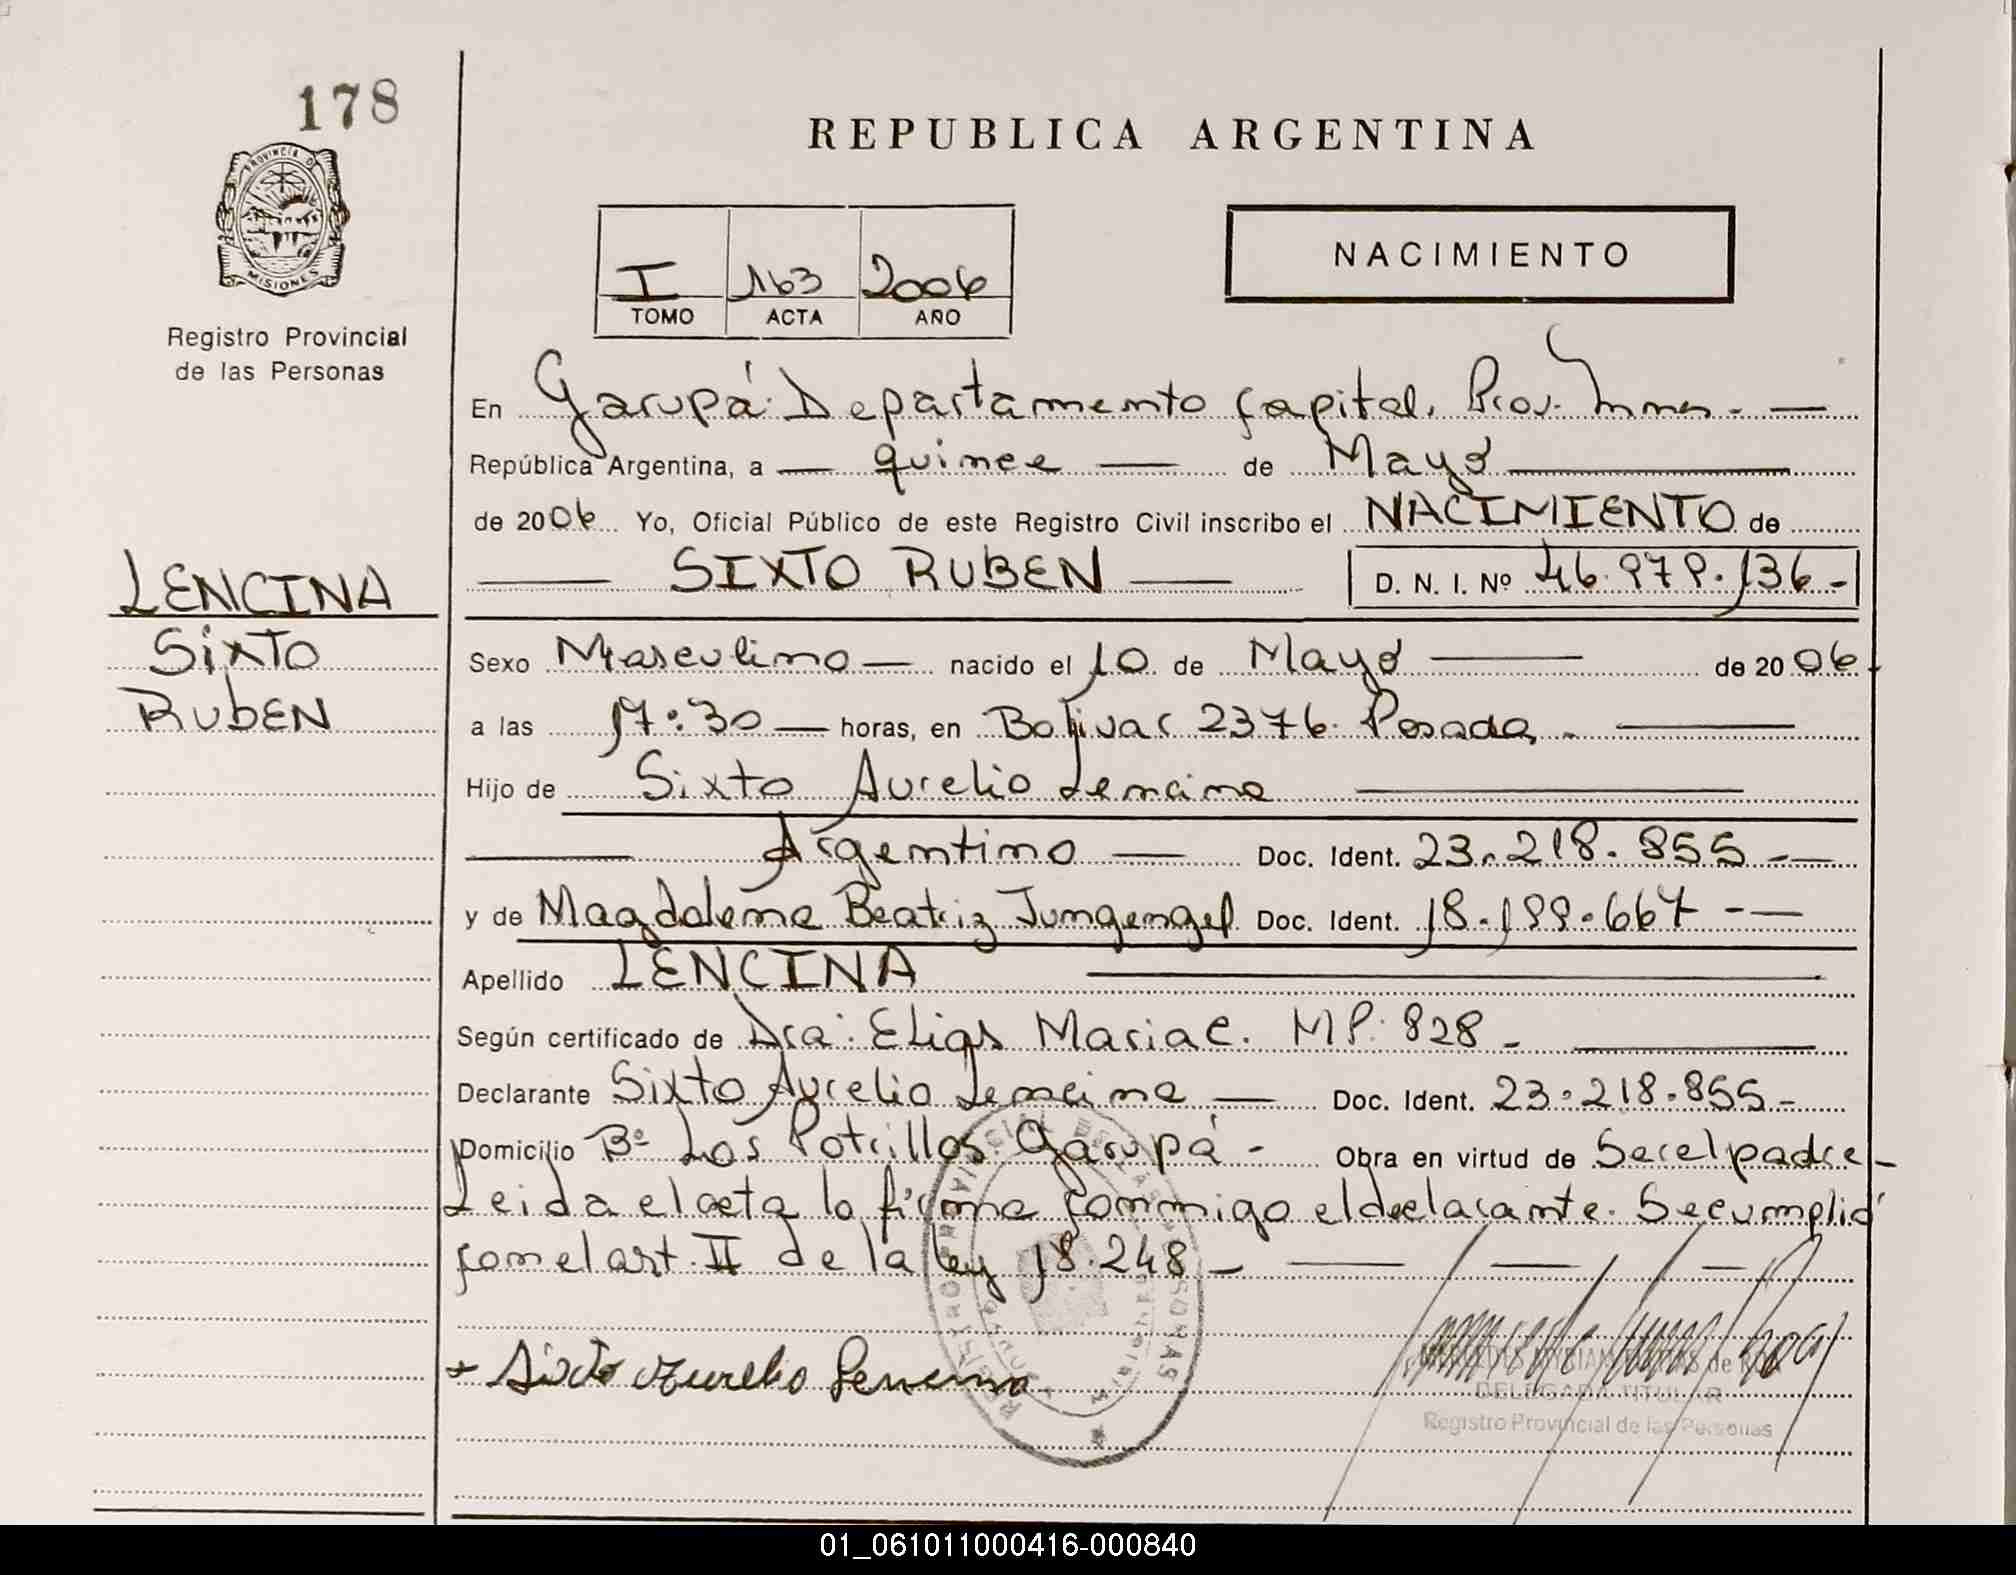 178
REPUBLICA ARGENTINA
PROVINCIA D
MISIONES
Registro Provincial
de las Personas
I 163 2006
TOMO ACTA AÑO
NACIMIENTO
En Garupá Departamento Capital, Prov. Mnes. —
República Argentina, a — quince — de Mayo —
de 2006 Yo, Oficial Público de este Registro Civil inscribo el NACIMIENTO de
— SIXTO RUBEN — D. N. I. Nº 46.979.136.-
LENCINA
SixTO
RubEN
Sexo Masculino — nacido el 10 de Mayo — de 2006
a las 17:30 — horas, en Bolivar 2376. Posadas. —
Hijo de Sixto Aurelio Lencina —
— Argentino — Doc. Ident. 23.218.855 -—
y de Magdalena Beatriz Jungengel Doc. Ident. 18.199.667 -—
Apellido LENCINA —
Según certificado de Dra: Elias Maria C. MP: 828 - —
Declarante Sixto Aurelio Lencina — Doc. Ident. 23.218.855-
Domicilio Bº Los Potrillos Garupá - Obra en virtud de Ser el padre-
Leida el acta lo firma conmigo el declarante. Se cumplió
con el art. II de la ley 18.248 - — — —
+ Sixto Aurelio Lencina
REGISTRO PROVINCIAL DE LAS PERSONAS
de ROA
DELEGADA TITULAR
Registro Provincial de las Personas
01_061011000416-000840